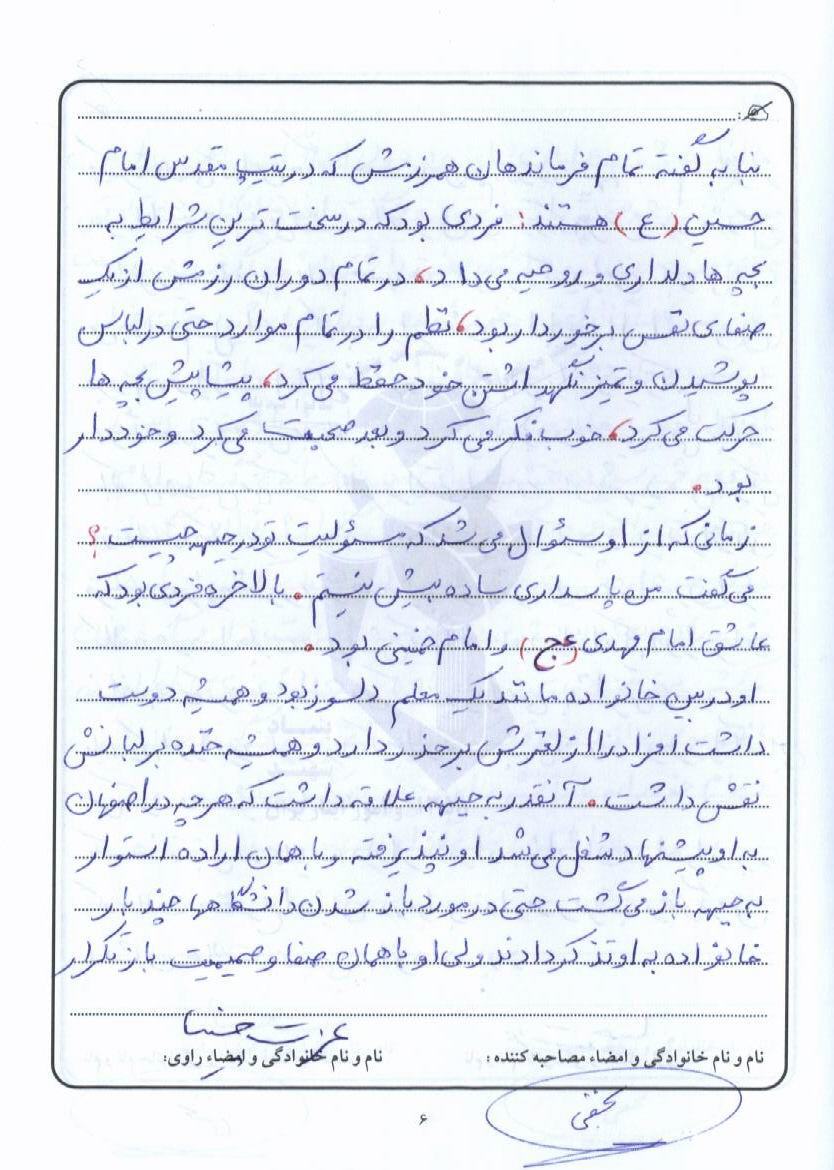 بنا به گفته تمام فرماندهان همرزمش که در تیپ مقدس امام
حسین (ع) هستند: فردی بود که در سخت ترین شرایط به
بچه ها دلداری و روحیه می داد، در تمام دوران رزمش از یک
صفای نفس برخوردار بود، نظم را در تمام موارد حتی در لباس
پوشیدن و تمیز نگهداشتن خود حفظ می کرد، پیشاپیش بچه ها
حرکت می کرد، خوب فکر می کرد و بعد صحبت می کرد و خوددار
بود.
زمانی که از او سئوال می شد که مسئولیت تو در جبهه چیست؟
می گفت من پاسداری ساده بیش نیستم. بالاخره فردی بود که
عاشق امام مهدی (عج) و امام خمینی بود.
او در بین خانواده مانند یک معلم دلسوز بود و همیشه دوست
داشت افراد را از لغزش برحذر دارد و همیشه خنده بر لبانش
نقش داشت. آنقدر به جبهه علاقه داشت که هر چه در اصفهان
به او پیشنهاد شغل می شد او نپذیرفته و با همان اراده استوار
به جبهه باز می گشت حتی در مورد باز شدن دانشگاهها چند بار
خانواده به او تذکر دادند ولی او با همان صفا و صمیمیت باز تکرار
نام و نام خانوادگی و امضاء مصاحبه کننده: نام و نام خانوادگی و امضاء راوی:
۶